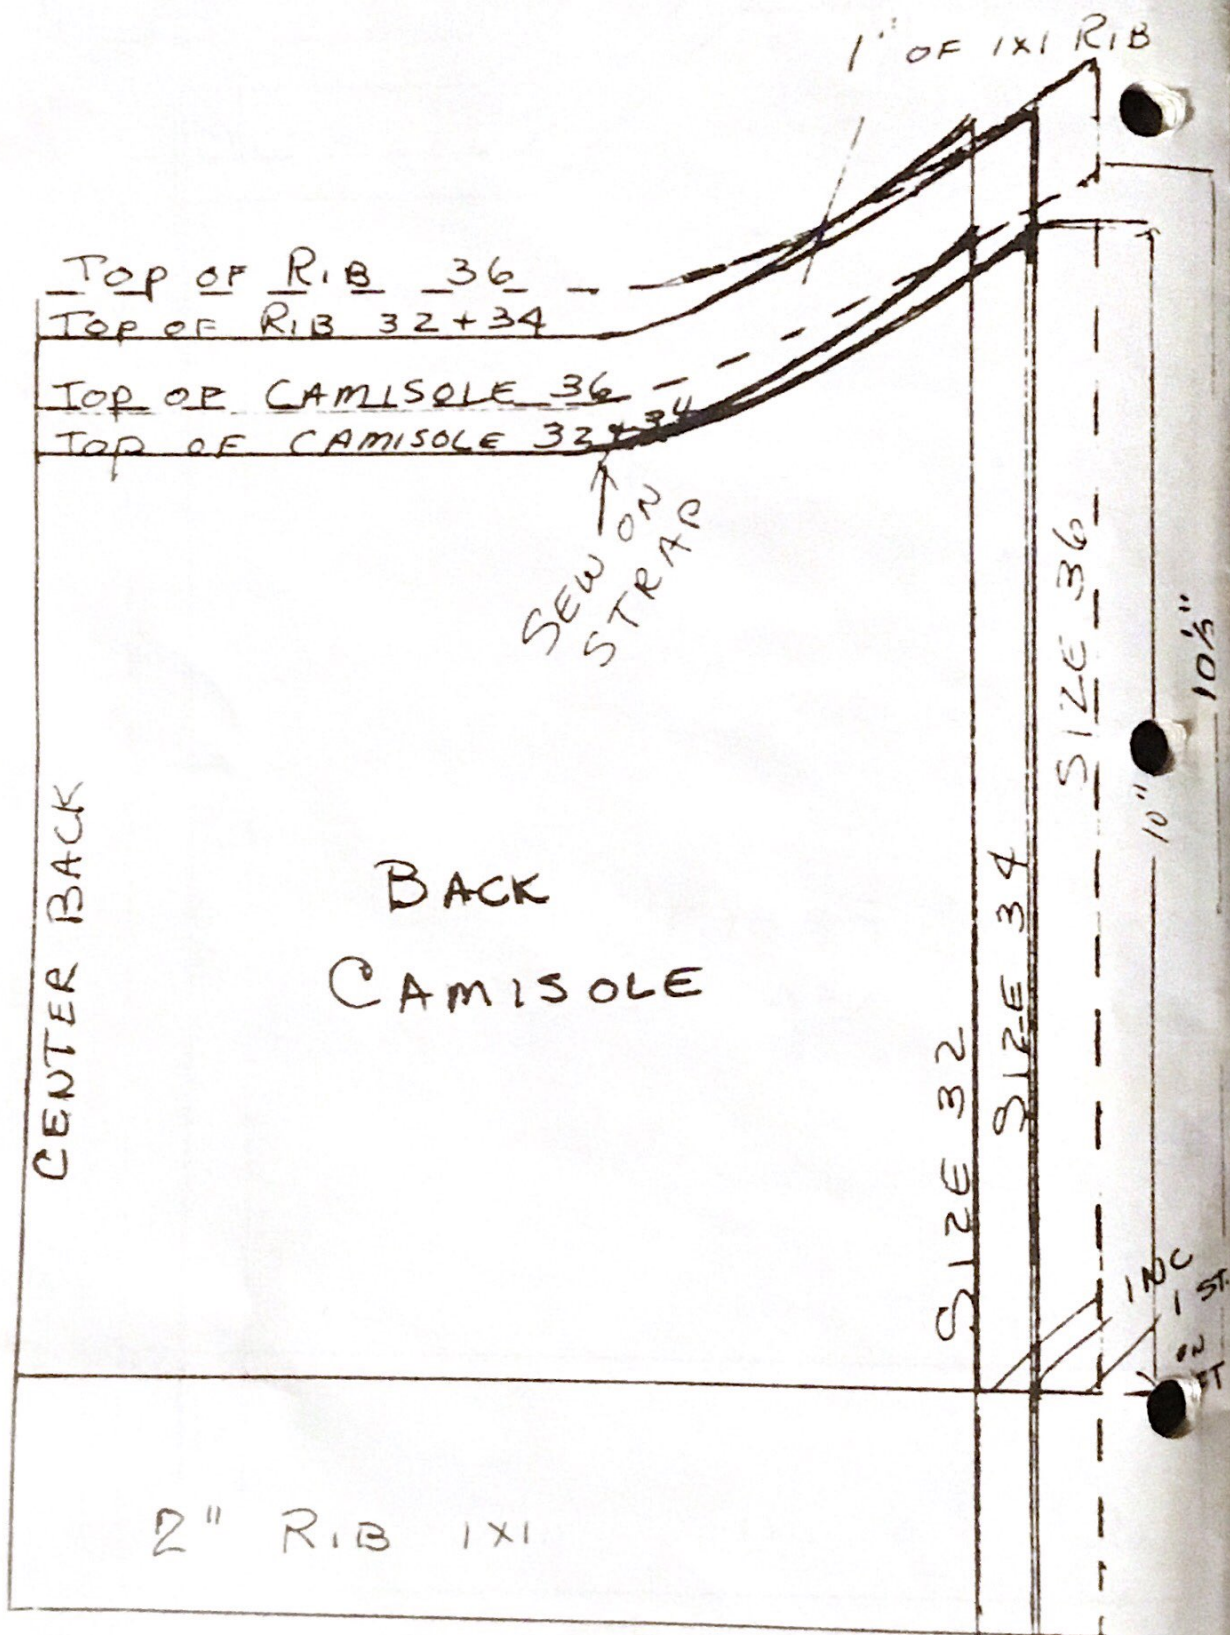 1" OF 1X1 RIB
TOP OF RIB 36
TOP OF RIB 32+34
TOP OF CAMISOLE 36
TOP OF CAMISOLE 32+34
SEW ON
STRAP
SIZE 36
10½"
10"
CENTER BACK
BACK
CAMISOLE
SIZE 34
SIZE 32
INC
1 ST.
ON
2" RIB 1X1